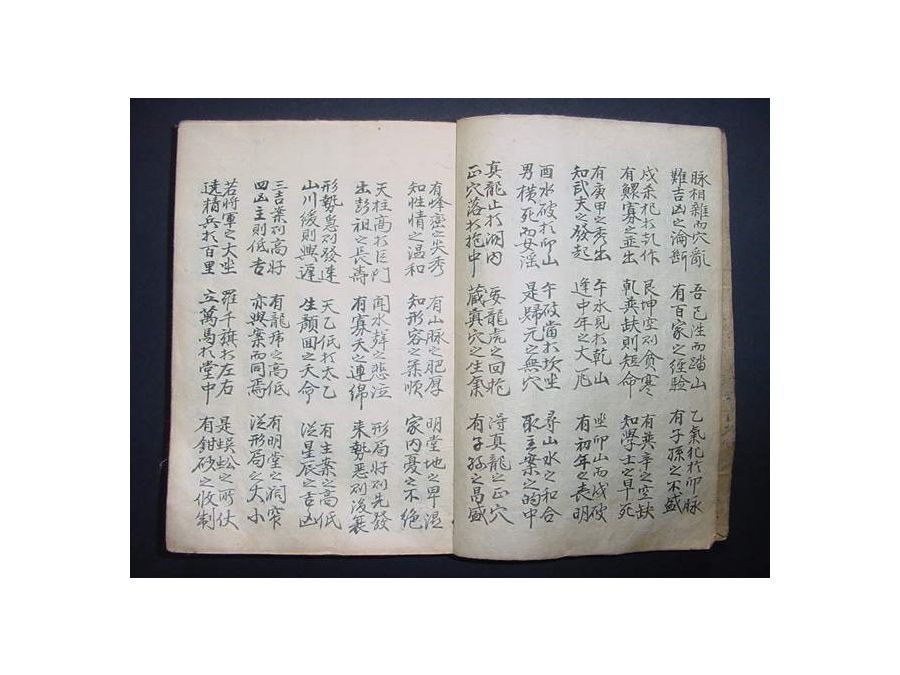 脉相雜而穴亂
難吉凶之論斷
吾已涉而踏山
有百家之經驗
乙氣犯於卯脉
有子孫之不盛
有鰥寡之並出
艮坤空則貧寒
乾巽缺則短命
有巽辛之空缺
知學士之早死
有庚甲之秀出
知武夫之發起
午水見於乾山
逢中年之大厄
坐卯山而戌破
有初年之喪明
酉水破於卯山
男橫死而女淫
午破當於坎坐
是歸元之無穴
尋山水之和合
取主案之的中
真龍止於洞内
正穴落於抱中
要龍虎之回抱
藏真穴之生氣
得真龍之正穴
有子孫之昌盛
有峰巒之尖秀
知性情之温和
有山脉之肥厚
知形容之柔順
明堂地之卑湿
家内憂之不絶
天柱高於巨門
生彭祖之長壽
聞水聲之悲泣
有寡夭之連綿
形局好則先發
來勢惡則後衰
形勢急則發速
山川緩則興遲
天乙低於太乙
生顔回之夭命
有主案之高低
從星辰之吉凶
三吉案則高好
四凶主則低吉
有龍席之高低
亦與案而同焉
有明堂之濶窄
從形局之大小
若將軍之大坐
選精兵於百里
羅千旗於左右
立萬馬於堂中
是蜈蚣之所伏
有鉗砂之收制